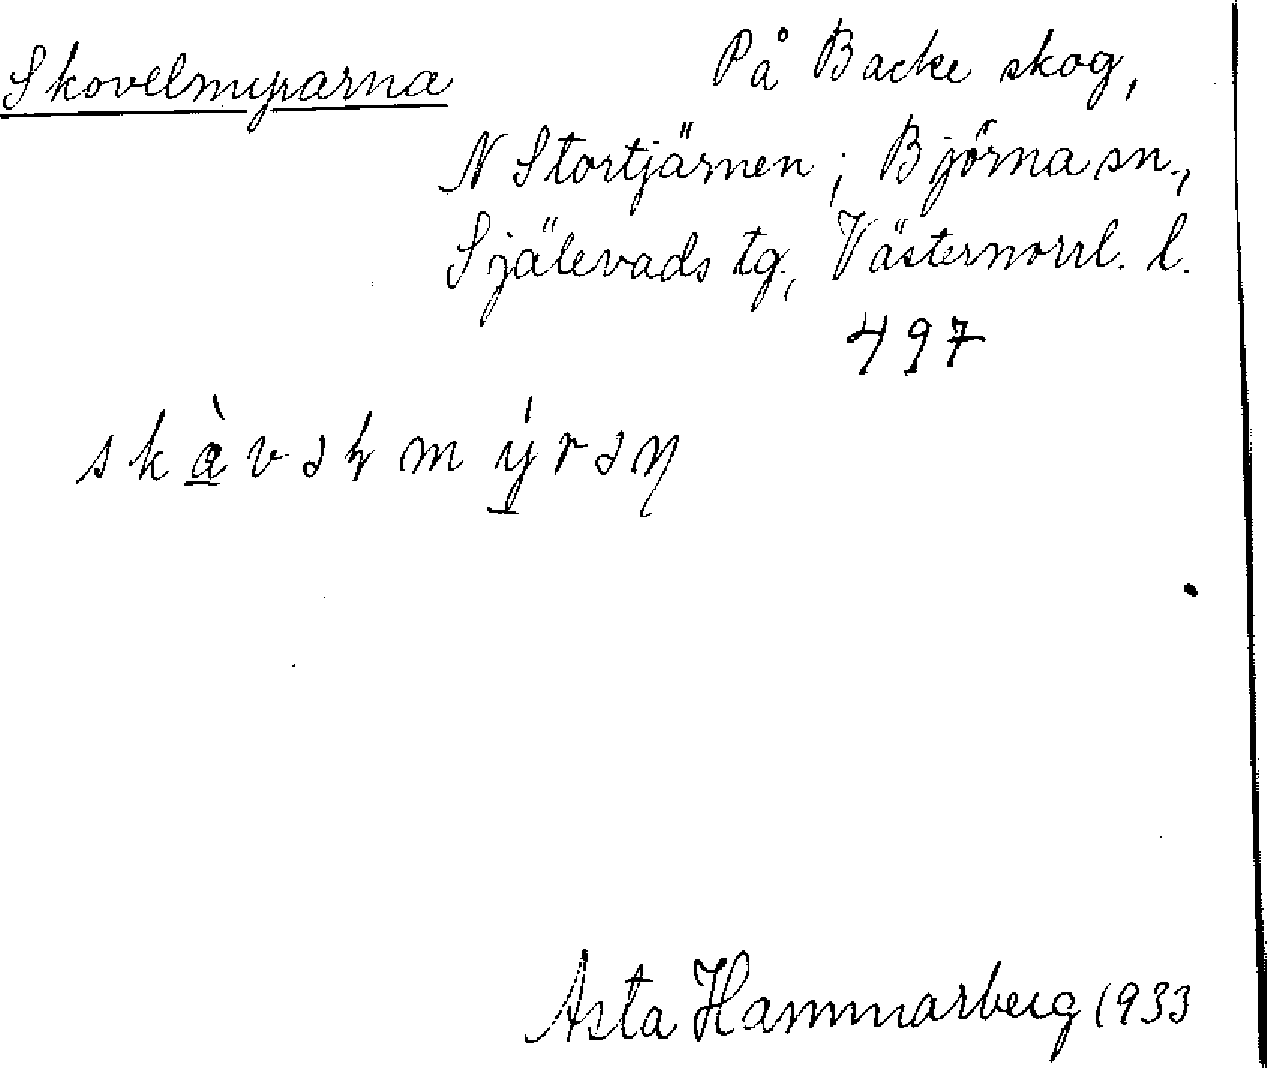 Skovelmyrarna
På Backe skog,
N Stortjärnen; Björna sn.,
Själevads tg., Västernorrl. l.
497
skàvəɽmýrəɳ
Asta Hammarberg 1933